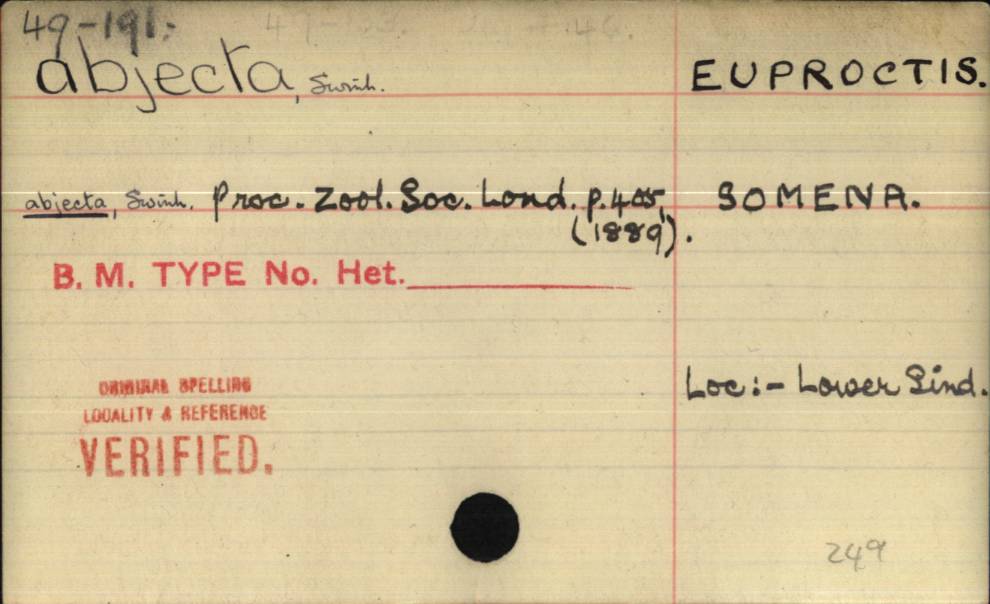 49-191:
abjecta, Swinh. EUPROCTIS.
abjecta, Swinh. Proc. Zool. Soc. Lond. p.405, SOMENA.
(1889).
B. M. TYPE No. Het.
ORIGINAL SPELLING
LOCALITY & REFERENCE
VERIFIED.
Loc:- Lower Sind.
249